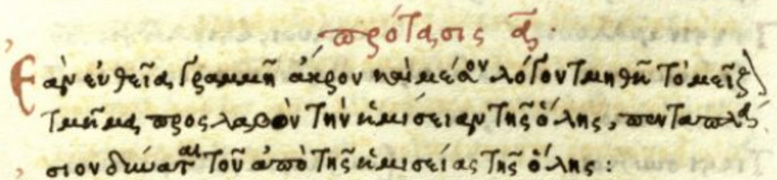 πρότασις α
Εαν ευθεῖα γραμμὴ ἄκρον καὶ μέσον λόγον τμηθῆ τὸ μεῖζ
τμῆμα προσλαβὸν τὴν ἡμίσειαν τῆς ὅλης, πενταπλά
σιον δύναται τοῦ ἀπὸ τῆς ἡμισείας τῆς ὅλης :